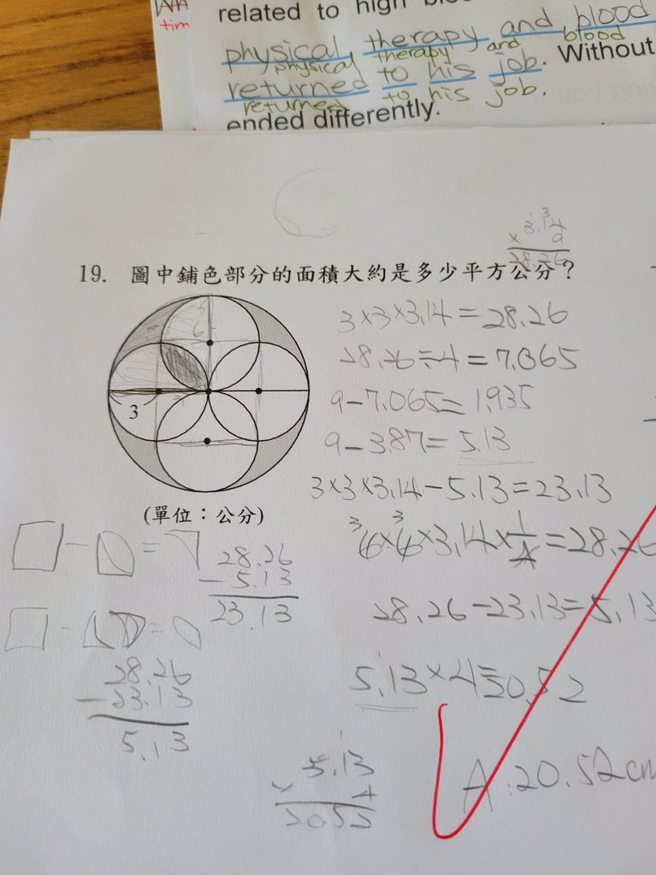 AM
tim
related to high blo
physical therapy and blood
physical therapy and blood
returned to his job. Without
returned to his job.
ended differently.
3.14
× 9
28.26
19. 圖中鋪色部分的面積大約是多少平方公分？
6
3
(單位：公分)
3×3×3.14=28.26
28.26÷4=7.065
9-7.065=1.935
9-3.87=5.13
3×3×3.14-5.13=23.13
6×6×3.14×1/4=28.26
28.26-23.13=5.13
5.13×4=20.52
A:20.52cm
28.26
-5.13
23.13
28.26
-23.13
5.13
5.13
× 4
2052